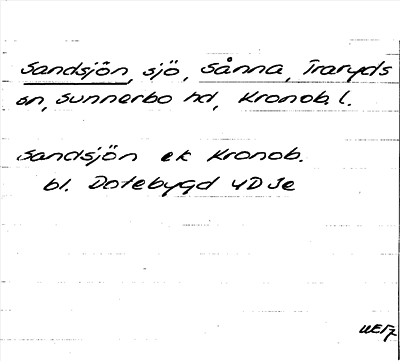 Sandsjön, sjö, Sånna, Traryds
sn, Sunnerbo hd, Kronob. l.
Sandsjön ek Kronob.
bl. Dotebygd 4D 3e